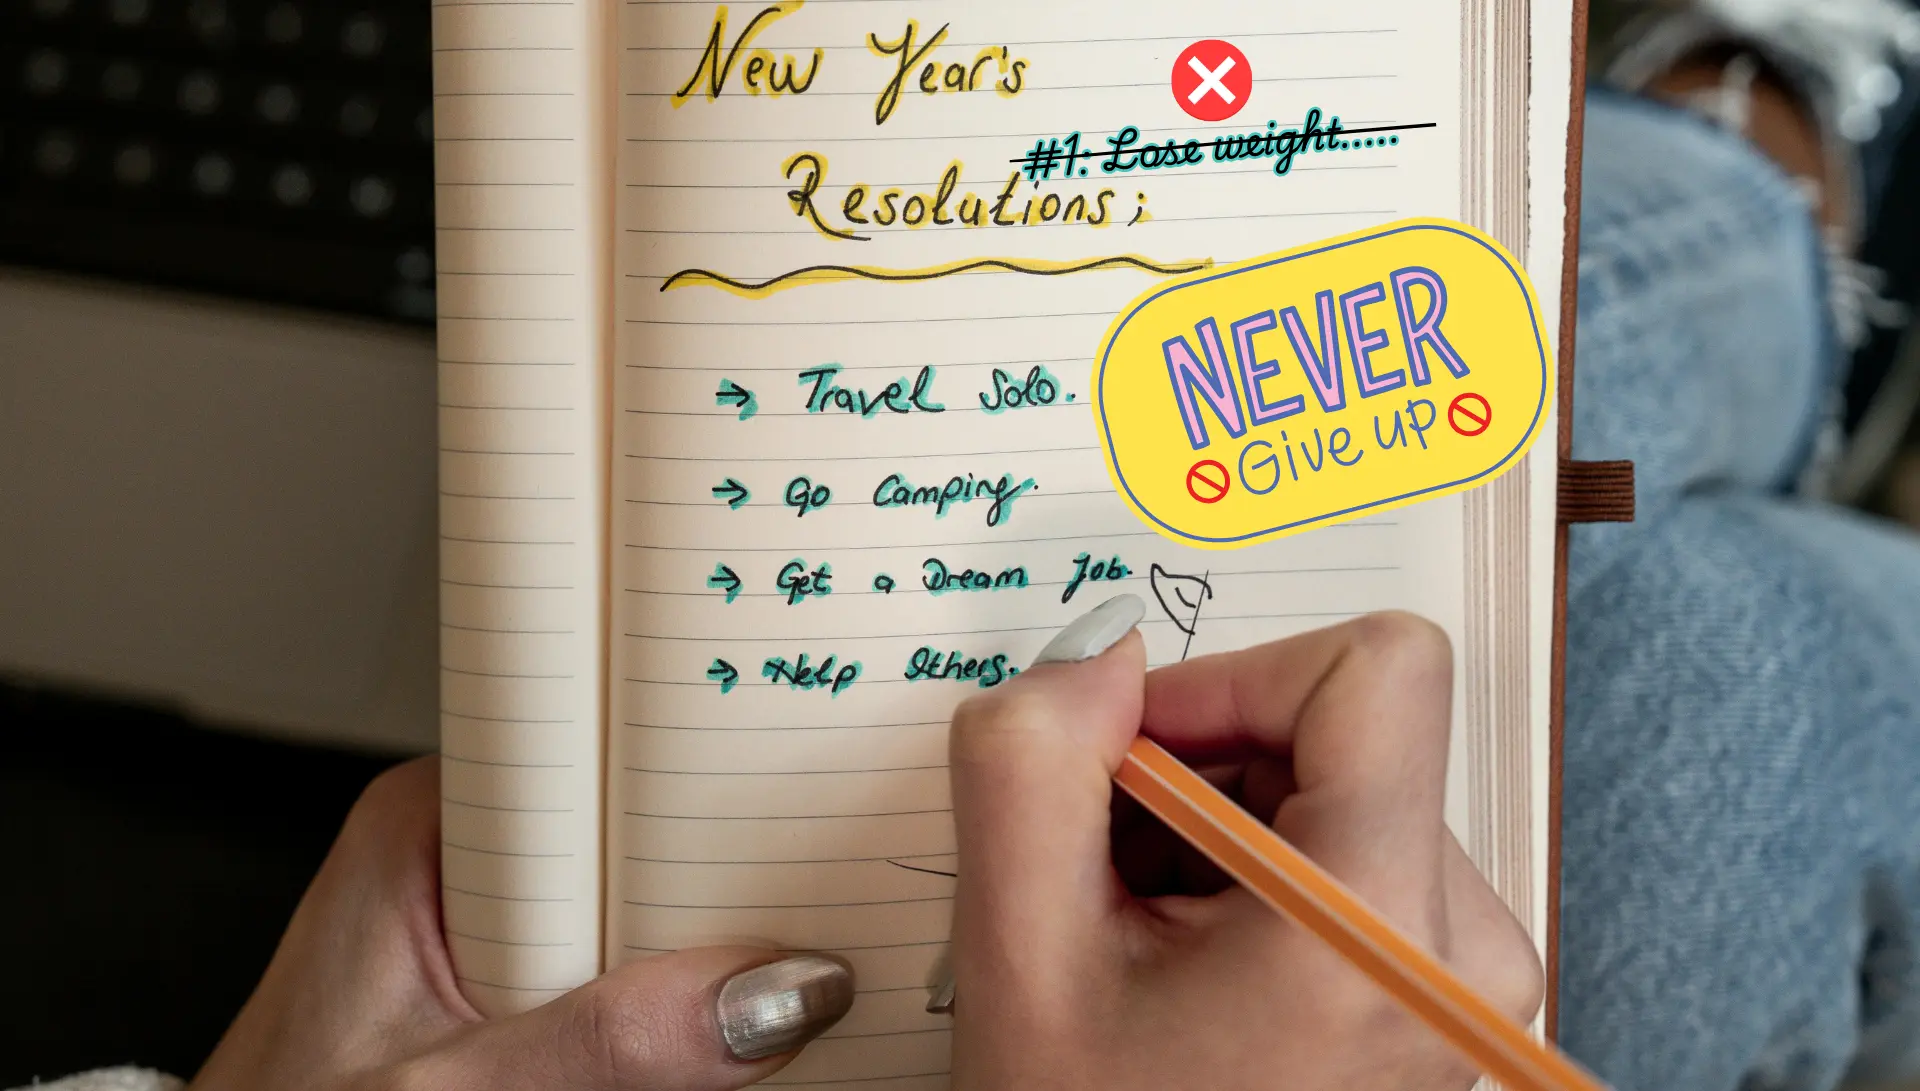 New Year's
#1: Lose weight.....
Resolutions;
→ Travel Solo.
NEVER
Give up
→ Go Camping.
→ Get a Dream Job.
→ Help Others.